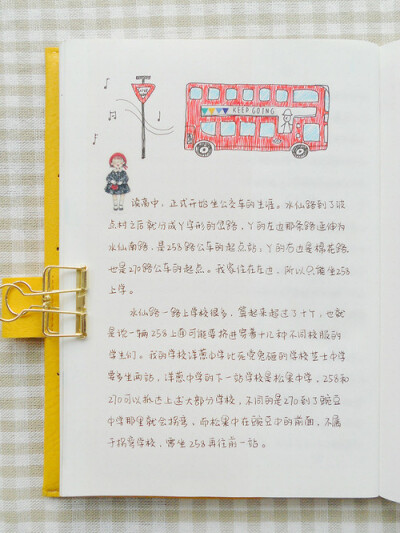 KEEP GOING
读高中，正式开始坐公交车的生涯。水仙路到了设
点村之后就分成丫字形的岔路，丫的左边那条路延伸为
水仙南路，是258路公车的起点站，丫的右边是棉花路，
也是270路公车的起点。我家住在左边，所以只能坐258
上学。
水仙路一路上学校很多，算起来超过了十个，也就
是说一辆258上面可能要挤进穿着十几种不同校服的
学生们。我的学校洋葱中学比死党兔砸的学校芝士中学
要多坐两站，洋葱中学的下一站学校是松果中学。258和
270可以抵达上述大部分学校，不同的是270到了豌豆
中学那里就会拐弯，而松果中在豌豆中的前面，不属
于拐弯学校，需坐258再往前一站。